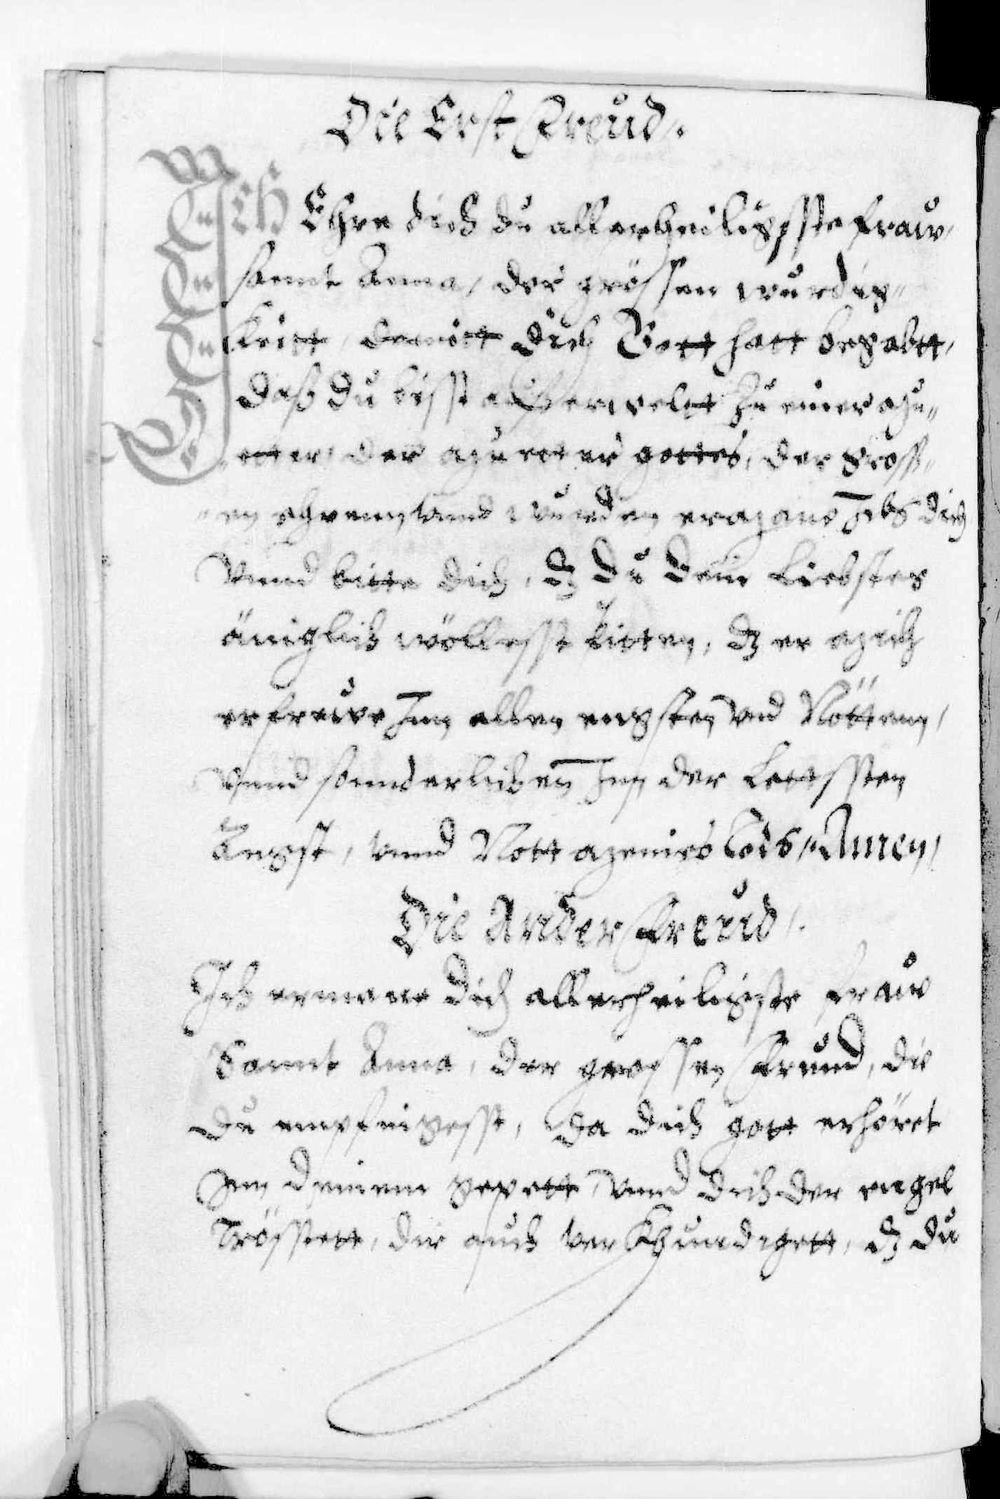 Die Erst Freüd.
Ich Ehre dich du allerheiligsste fraw,
sannt Anna, der grössen wurdig„
keitt, damitt dich Gott hatt begabtt,
daß du bisst ausserwelt zu einer mu„
etter, der muetter gottes, der gross„
en ehrenn vnnd wurden ermane Ich dich
Vnnd bitte dich, dz du dein Liebstes
äniglich wöllesst bitten, dz er mich
erfrewe Inn allen engsten vnd Nötten,
Vnnd sonnderlichen Inn der Lettssten
Angst, vnnd Nott meines Tods, Amen,
Die Ander Freüd.
Ich ermane dich allerheiligste fraw
Sannt Anna, der grossen Freud, die
du empfingesst, da dich gott erhöret
Inn deinem gepett, vnnd dich der engel
Trösstett, dir auch verkhundigett, dz du